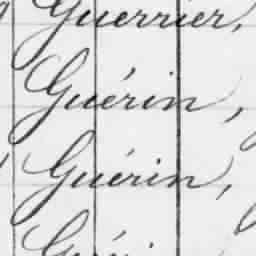 Guerrier,
Guérin,
Guérin,